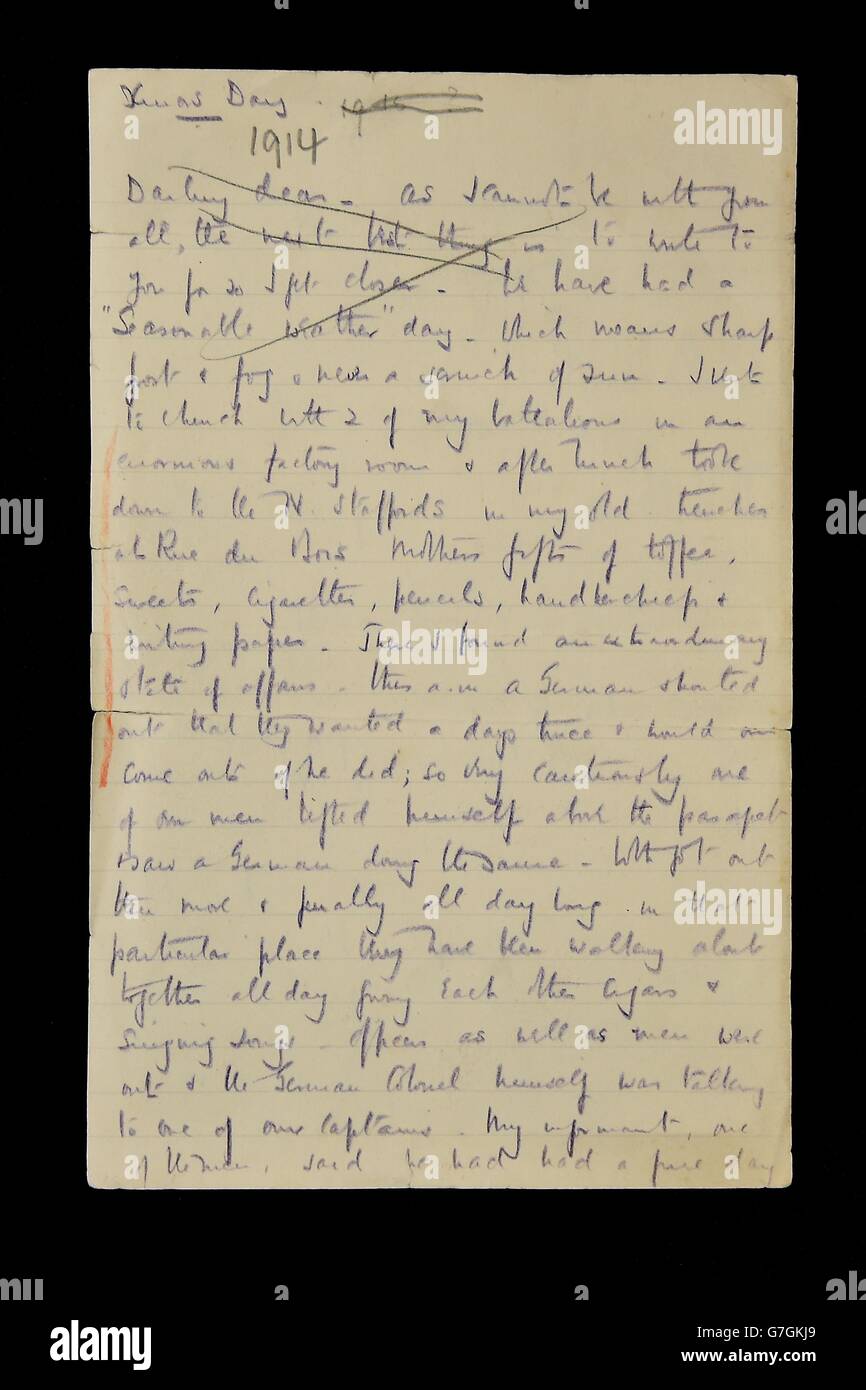 Xmas Day. 1915?
1914
Darling dear - as I cannot be with you
all, the next best thing is to write to
you for so I get closer - We have had a
"Seasonable weather" day - which means sharp
frost & fog & never a scrinch of sun - I went
to church with 2 of my battalions in an
enormous factory room & after lunch took
down to the N. Staffords in my old trenches
at Rue du Bois Mothers gifts of toffee,
sweets, cigarettes, pencils, handkerchiefs &
writing paper - There I found an extraordinary
state of affairs - this a.m a German shouted
out that they wanted a days truce & would
come out if he did; so very cautiously one
of our men lifted himself above the parapet
& saw a German doing the same - Both got out
then more & finally all day long in that
particular place they have been walking about
together all day giving each other cigars &
singing songs - Officers as well as men were
out & the German Colonel himself was talking
to one of our Captains. My informant, one
of the men, said he had had a fine day
a
alamy
alamy
Image ID: G7GKJ9
www.alamy.com